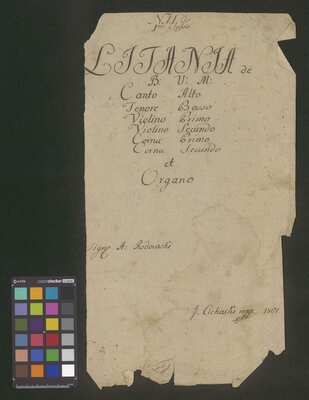 LITANIA de
B: V: M:
Canto Alto
Tenore Basso
Violino Primo
Violino Secundo
Corno Primo
Corno Secundo
et
Organo
A: Rodowski
J. Cichoski mpp 1801